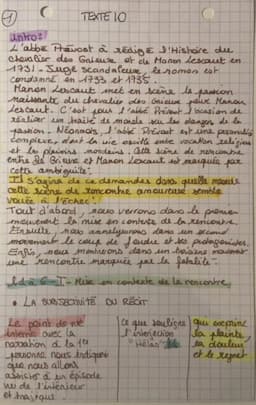 1
TEXTE 10
Intro:
L'abbé Prévost à rédigé l'Histoire du
chevalier des Grieux et de Manon Lescaut en
1731. Jugé scandaleux, le roman est
condamné en 1733 et 1735.
Manon Lescaut met en scène la passion
naissante du chevalier des Grieux pour Manon
Lescaut. C'est pour l'abbé Prévost l'occasion de
réaliser un traité de morale sur les dangers de la
passion. Néanmoins, l'abbé Prévost est une personnalité
complexe, dont la vie oscille entre vocation religieuse
et les plaisirs mondains. Cette scène de rencontre
entre Des Grieux et Manon Lescaut est marquée par
cette ambiguïté.
Il s'agira de se demander dans quelle mesure
cette scène de rencontre amoureuse semble
vouée à l'échec.
Tout d'abord, nous verrons dans le premier
mouvement la mise en contexte de la rencontre.
Ensuite, nous analyserons dans un second
mouvement le coup de foudre et les protagonistes.
Enfin, nous montrerons dans un troisième mouvement
une rencontre marquée par la fatalité.
I - Mise en contexte de la rencontre
• LA SUBJECTIVITÉ DU RÉCIT
Le point de vue
interne avec la
narration à la 1ère
personne nous indique
que nous allons
assister à un épisode
vu de l'intérieur
et tragique.
Ce que souligne
l'interjection
"Hélas"
qui exprime
la plainte,
la douleur
et le regret